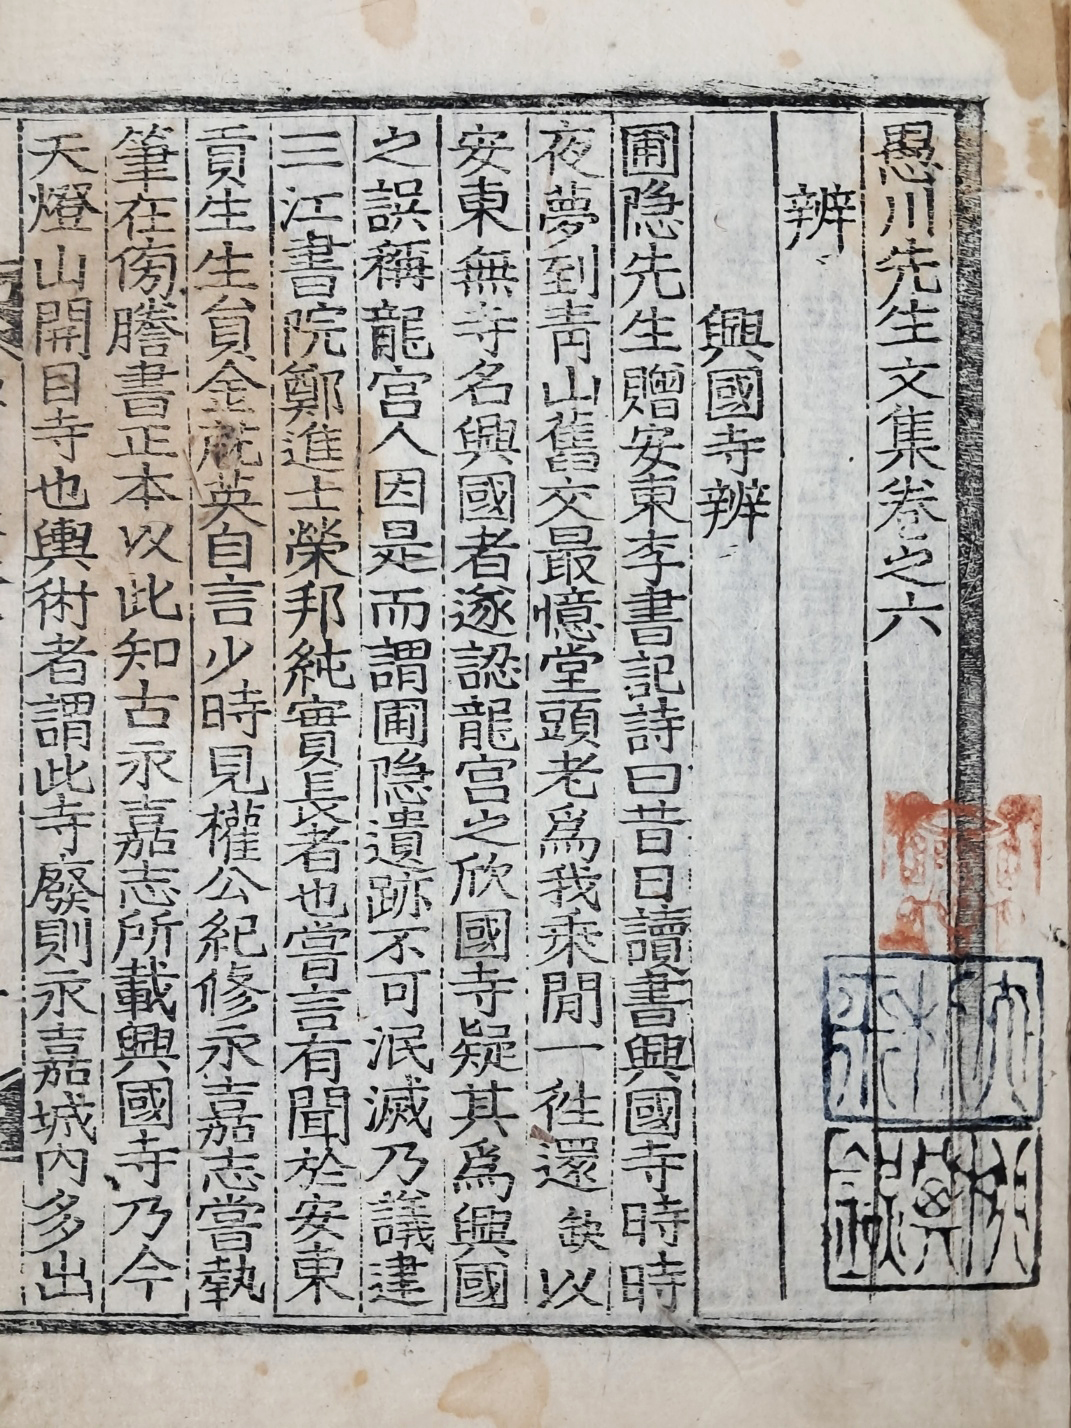 愚川先生文集卷之六
辨
興國寺辨
圃隐先生贈安東李書記詩曰昔日讀書興國寺時時
夜夢到靑山舊交最憶堂頭老爲我乘閒一徃還 缺 以
安東無寺名興國者遂認龍宮之欣國寺疑其爲興國
之誤稱龍宮人因是而謂圃隐遺跡不可泯滅乃議建
三江書院鄭進士榮邦純實長者也嘗言有聞於安東
貢生生員金英自言少時見權公紀修永嘉志嘗執
筆在傍謄書正本以此知古永嘉志所載興國寺乃今
天燈山開目寺也輿術者謂此寺廢則永嘉城內多出